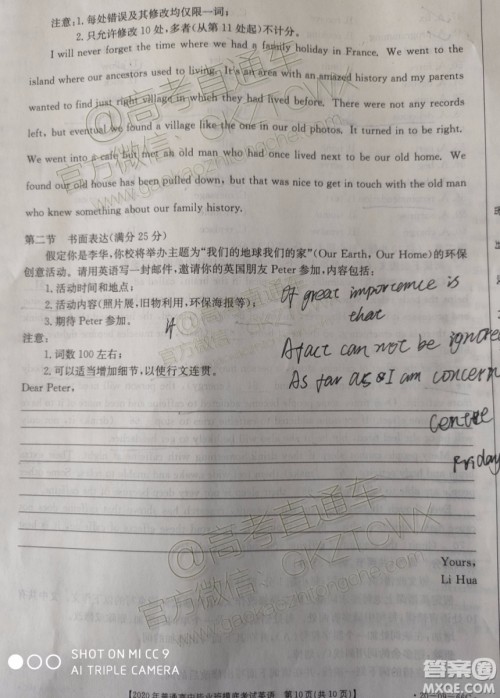 注意:1. 每处错误及其修改均仅限一词;
2. 只允许修改 10 处,多者(从第 11 处起)不计分。
I will never forget the time where we had a family holiday in France. We went to the
island where our ancestors used to living. It's an area with an amazed history and my parents
wanted to find just right village in which they had lived before. There were not any records
left, but eventual we found a village like the one in our old photos. It turned in to be right.
We went into a cafe but met an old man who had once lived next to be our old home. We
found our old house has been pulled down, but that was nice to get in touch with the old man
who knew something about our family history.
第二节 书面表达(满分 25 分)
假定你是李华,你校将举办主题为“我们的地球我们的家”(Our Earth, Our Home)的环保
创意活动。请用英语写一封邮件,邀请你的英国朋友 Peter 参加,内容包括:
1. 活动时间和地点;
2. 活动内容(照片展,旧物利用,环保海报等);
3. 期待 Peter 参加。
注意:
1. 词数 100 左右;
2. 可以适当增加细节,以使行文连贯。
Of great importance is
that
it
A fact can not be ignore
As far as I am concern
Centre
Friday
Dear Peter,
Yours,
Li Hua
@高考直通车
官方微信:GKZTCWX
www.gaokaozhitongche.com
@高考直通车
官方微信:GKZTCWX
www.gaokaozhitongche.com
SHOT ON MI CC 9
AI TRIPLE CAMERA
【2020 年普通高中毕业班摸底考试英语 第 10 页(共 10 页)】
答案圈
MXQE.COM